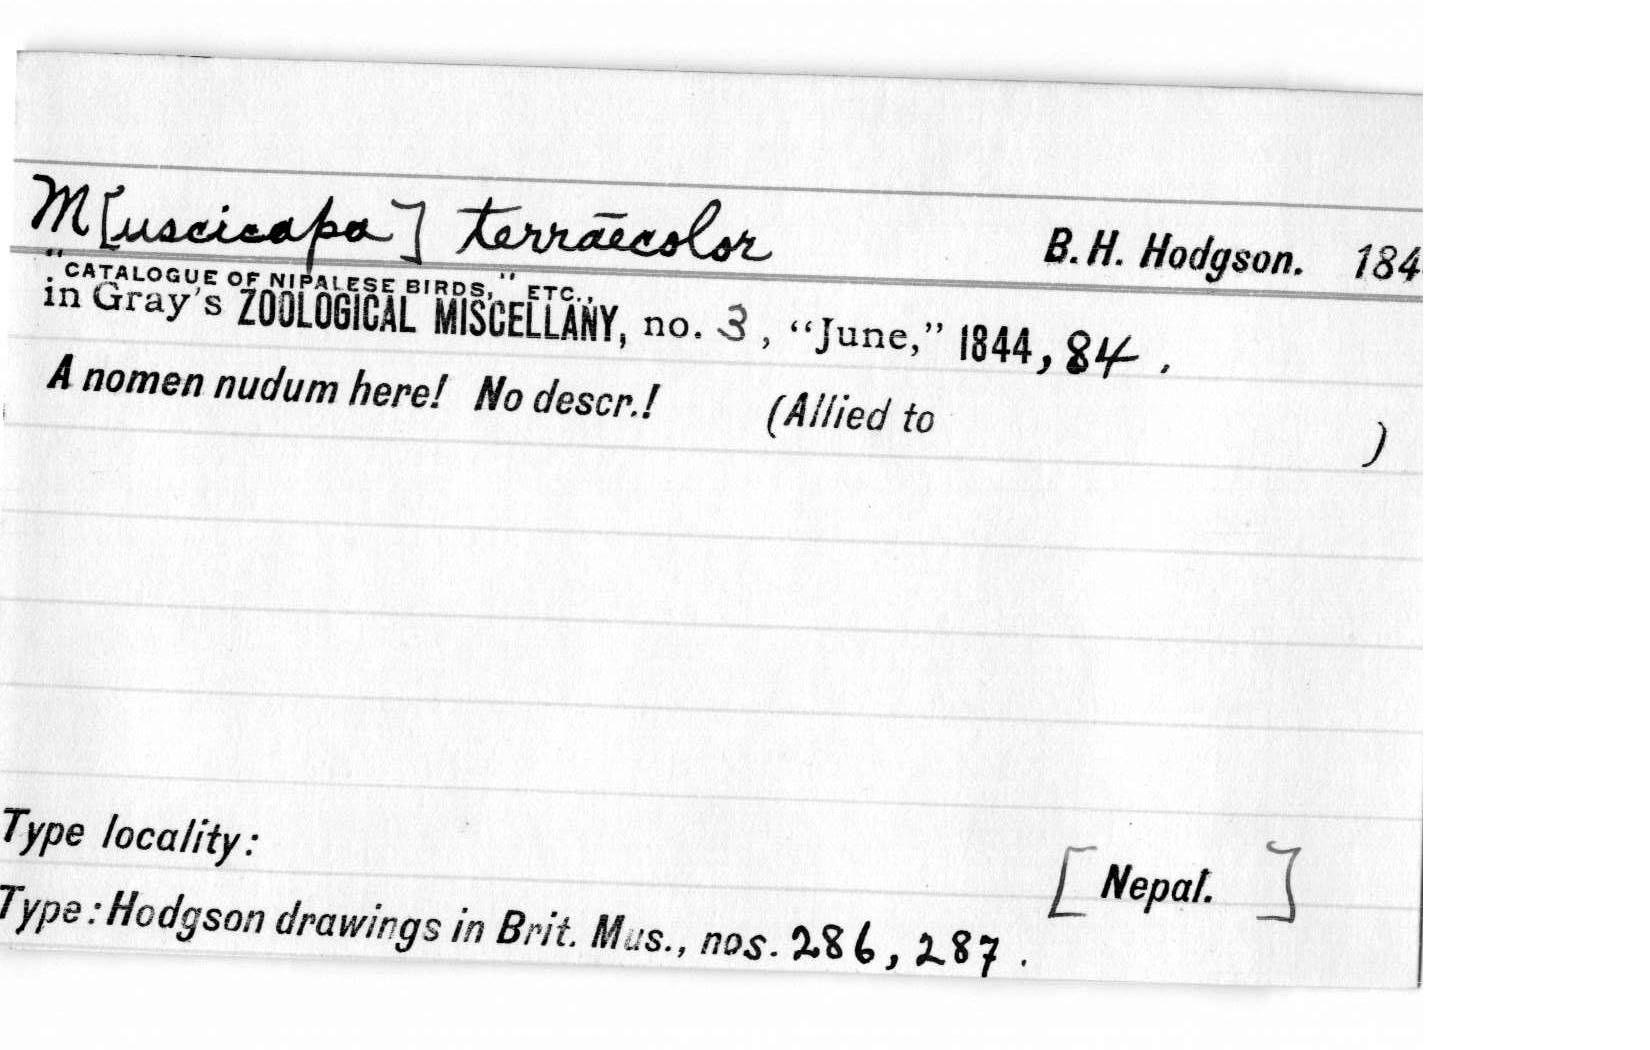 M[uscicapa] terrāecolor B. H. Hodgson. 184
"CATALOGUE OF NIPALESE BIRDS," ETC.,
in Gray's ZOOLOGICAL MISCELLANY, no. 3, "June," 1844, 84.
A nomen nudum here! No descr.! (Allied to )
Type locality: [Nepal.]
Type: Hodgson drawings in Brit. Mus., nos. 286, 287.